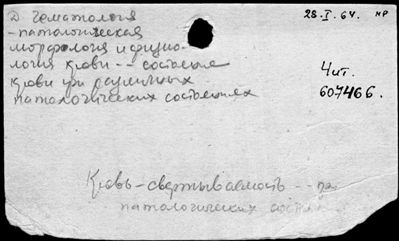 Д гематология
28.I.64. нр
- патологическая
морфология и физио-
логия крови -- состояние
крови при различных
патологических состояниях
Чит.
607466.
Кровь - свертываемость --
патологических состоян